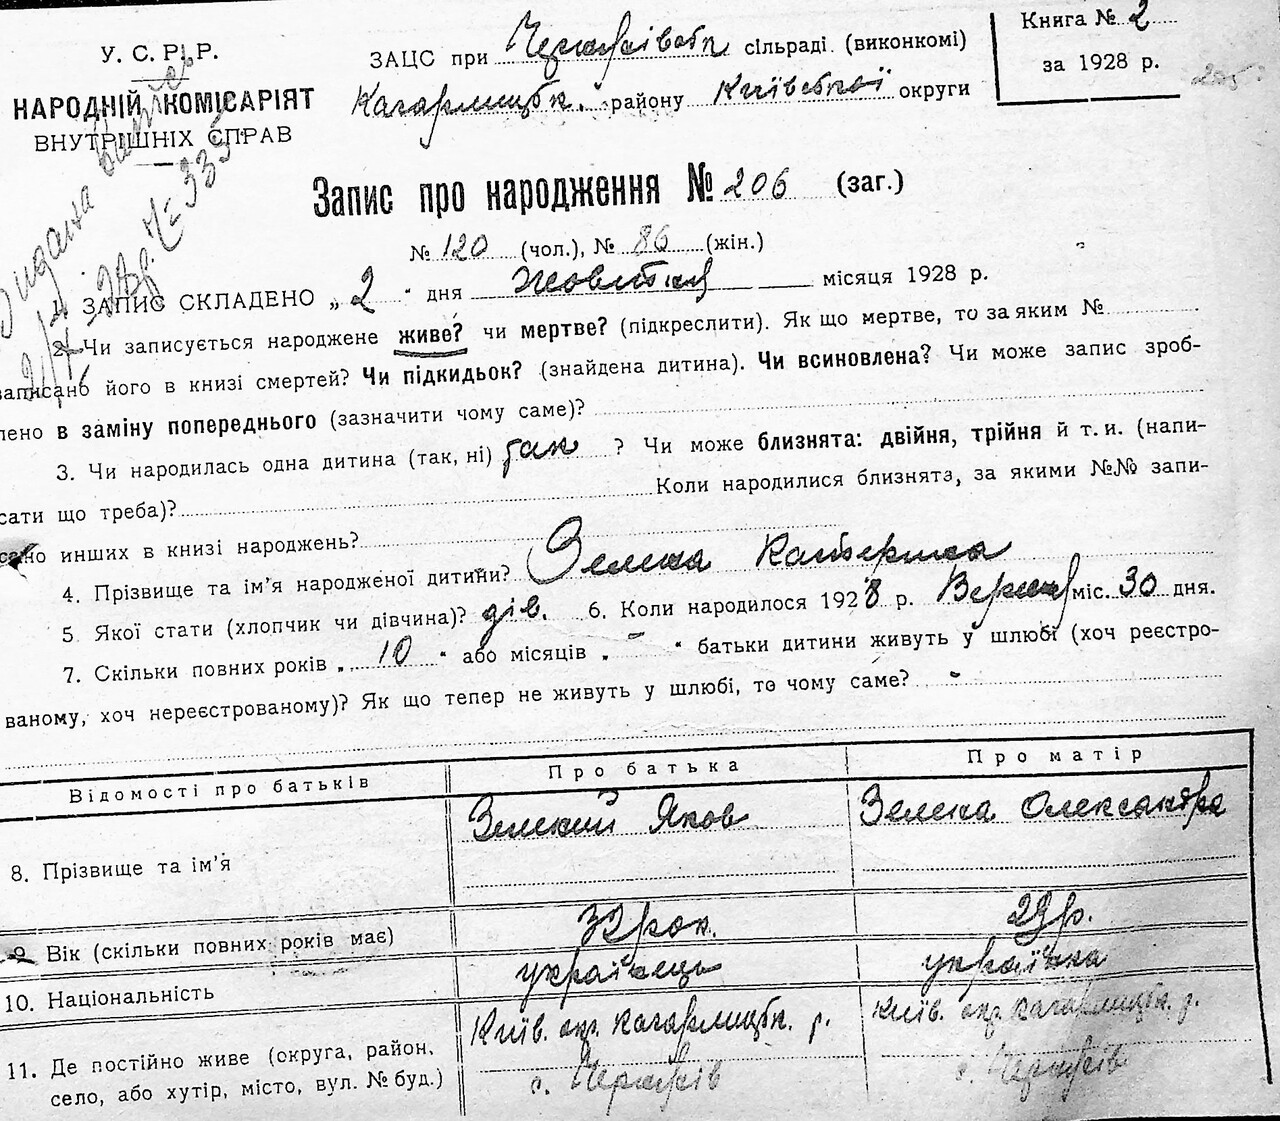 У. С. Р. Р.
НАРОДНІЙ КОМІСАРІЯТ
ВНУТРІШНІХ СПРАВ
ЗАЦС при сільраді (виконкомі)
Кагарлицьк. району Київської округи
Книга № 2
за 1928 р.
205
Запис про народження № 206 (заг.)
№ 120 (чол.), № 86 (жін.)
1. ЗАПИС СКЛАДЕНО „ 2 “ дня Жовтня місяця 1928 р.
2. Чи записується народжене живе? чи мертве? (підкреслити). Як що мертве, то за яким №
записано його в книзі смертей? Чи підкидьок? (знайдена дитина). Чи всиновлена? Чи може запис зроб-
лено в заміну попереднього (зазначити чому саме)?
3. Чи народилась одна дитина (так, ні) так ? Чи може близнята: двійня, трійня й т. и. (напи-
сати що треба)? Коли народилися близнята, за якими №№ запи-
сано инших в книзі народжень?
4. Прізвище та ім’я народженої дитини? Зелена Катерина
5. Якої стати (хлопчик чи дівчина)? дів. 6. Коли народилося 1928 р. Вересня міс. 30 дня.
7. Скільки повних років „ 10 “ або місяців „ – “ батьки дитини живуть у шлюбі (хоч реєстро-
ваному, хоч нереєстрованому)? Як що тепер не живуть у шлюбі, то чому саме? -
Відомості про батьків Про батька Про матір
8. Прізвище та ім’я Зелений Яков Зелена Олександра
9. Вік (скільки повних років має) 32 рок. 29 р.
10. Національність українець українка
11. Де постійно живе (округа, район, Київ. окр. Кагарлицьк. р. Київ. окр. Кагарлицьк. р.
село, або хутір, місто, вул. № буд.) с. с.